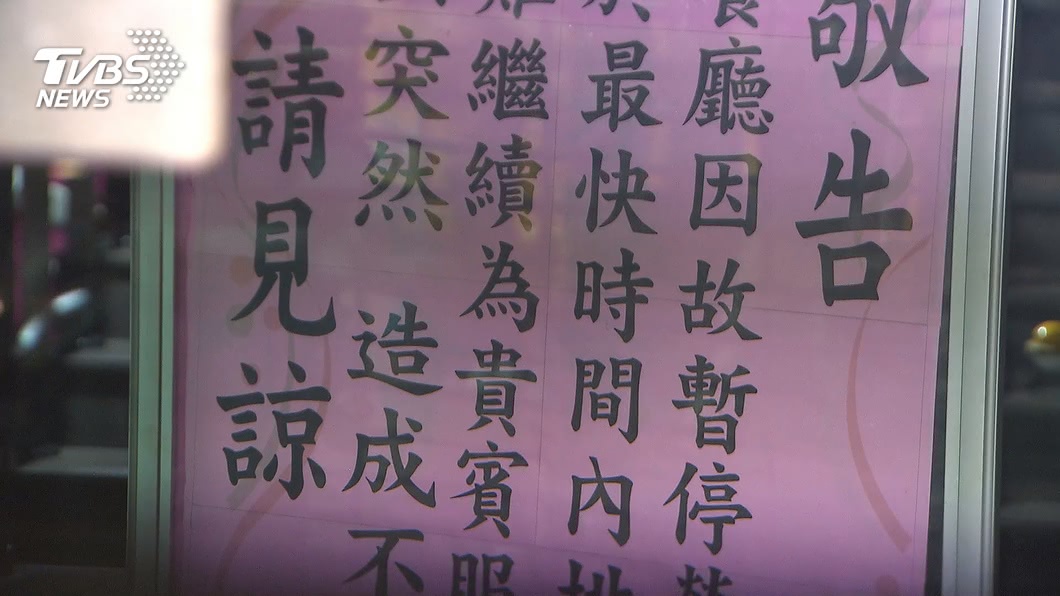 TVBS
NEWS
敬告
餐廳因故暫停
最快時間內
繼續為貴賓服
突然 造成不
請見諒